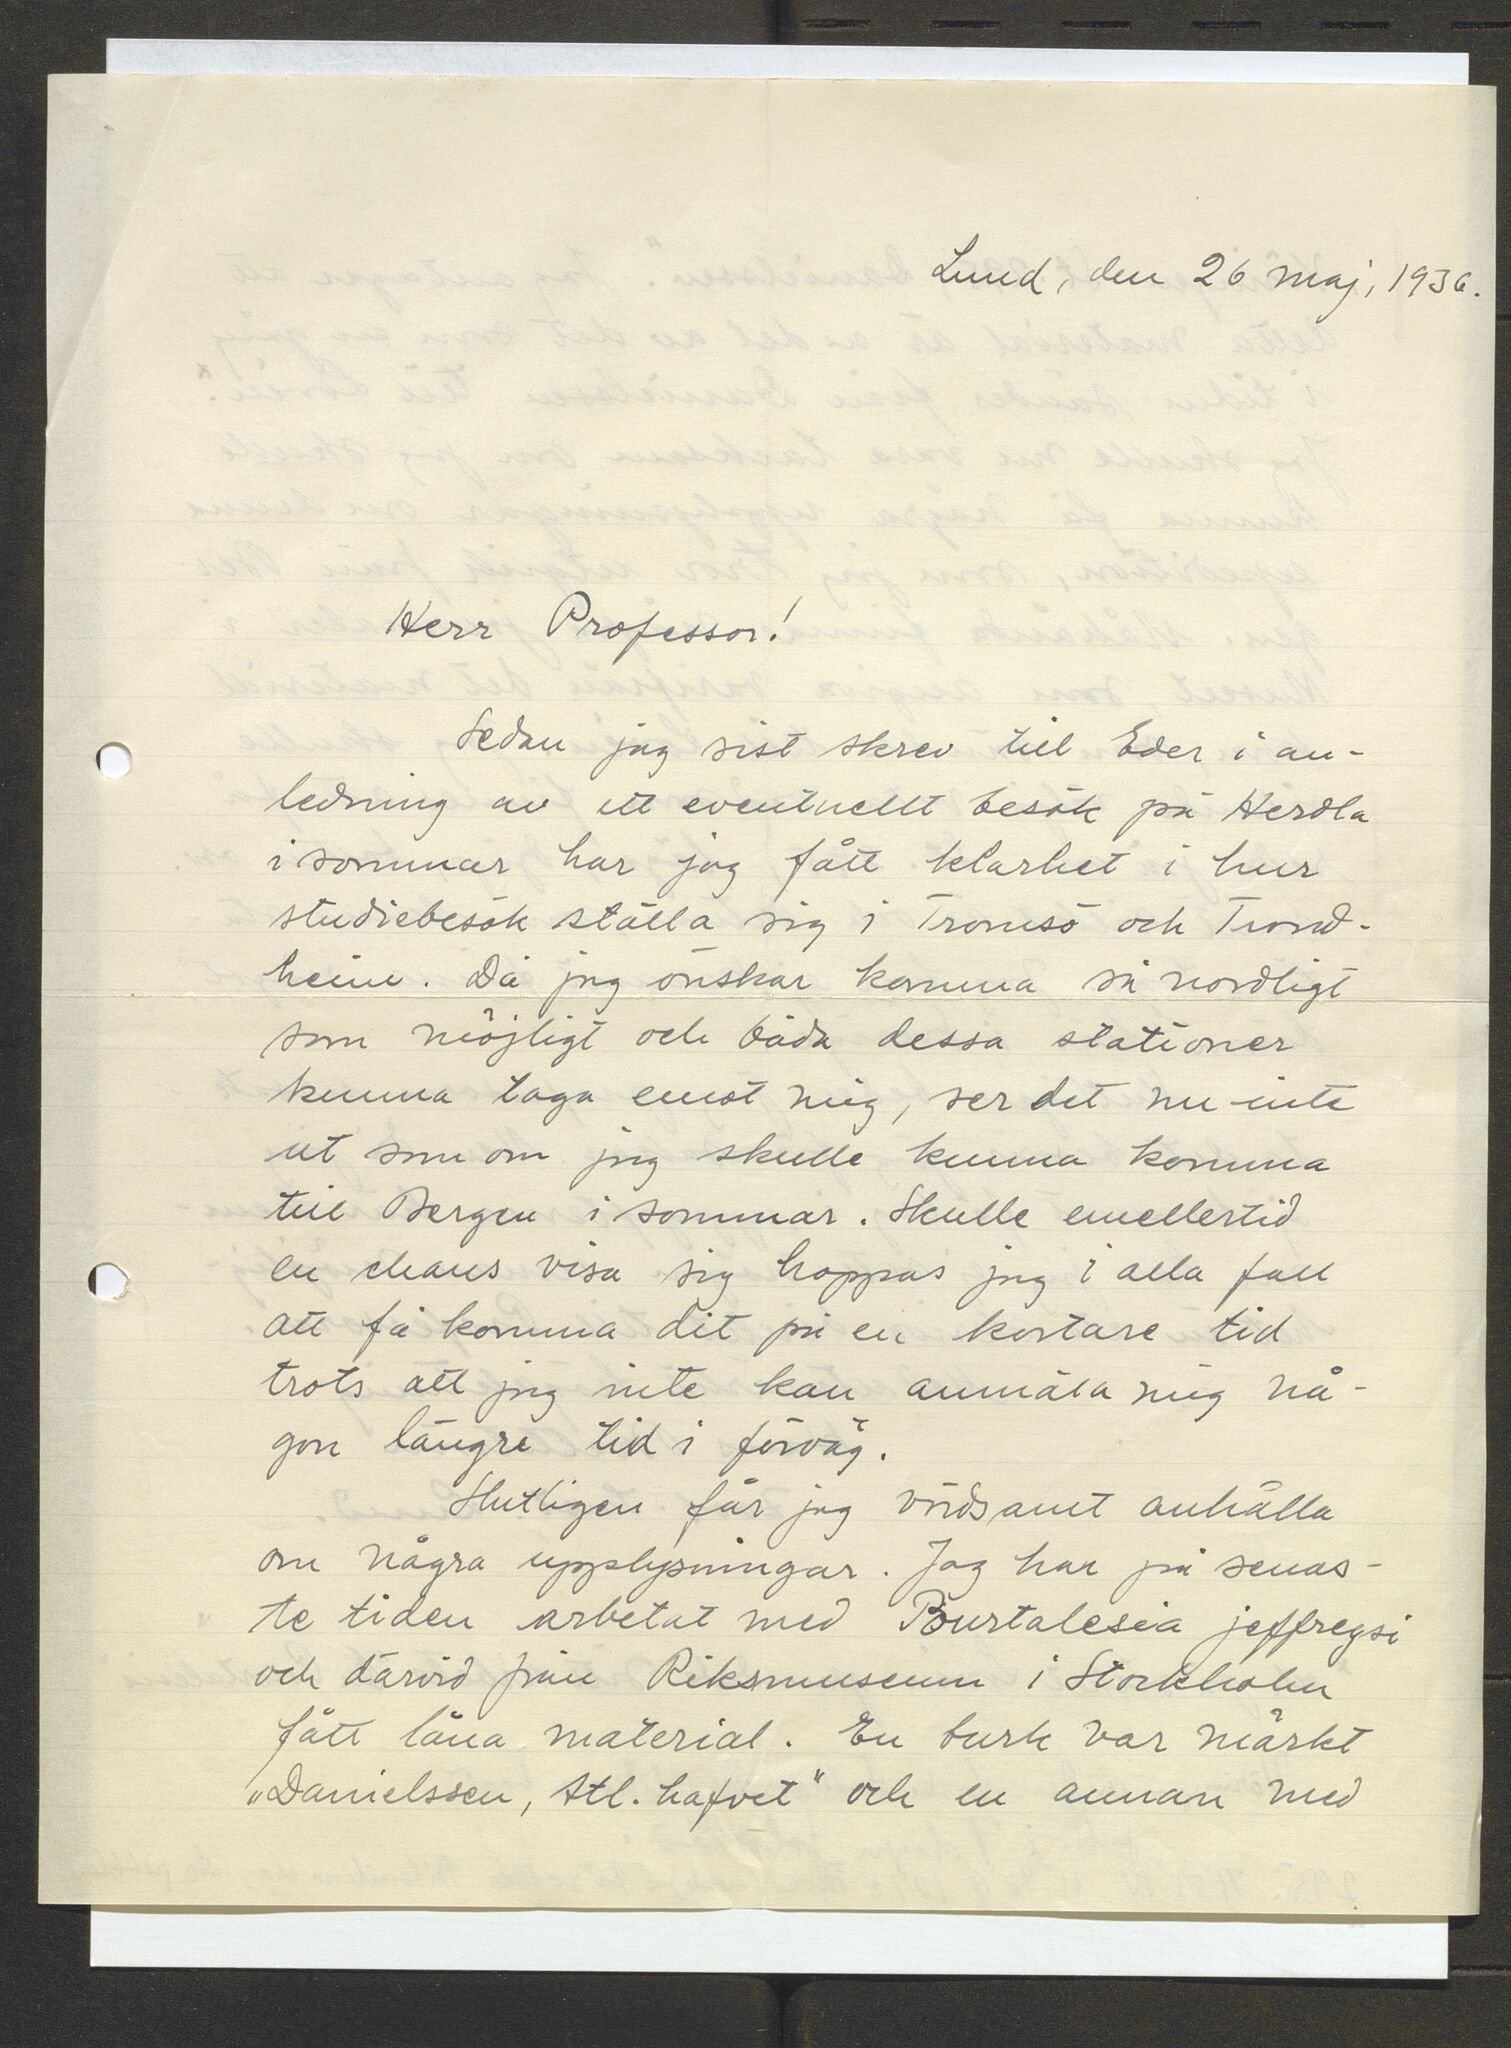 Lund, den 26 maj, 1936.
Herr Professor!
Sedan jag sist skrev till Eder i an-
ledning av ett eventuellt besök på Herdla
i sommar har jag fått klarhet i hur
studiebesök ställa sig i Tromsö och Trond-
heim. Då jag önskar komma så nordligt
som möjligt och båda dessa stationer
kunna taga emot mig, ser det nu inte
ut som om jag skulle kunna komma
till Bergen i sommar. Skulle emellertid
en chans visa sig hoppas jag i alla fall
att få komma dit på en kortare tid
trots att jag inte kan anmäla mig nå-
gon längre tid i förväg.
Slutligen får jag vördsamt anhålla
om några upplysningar. Jag har på senas-
te tiden arbetat med Pourtalesia jeffreysi
och därvid från Riksmuseum i Stockholm
fått låna material. En burk var märkt
„Danielssen, Atl. hafvet" och en annan med